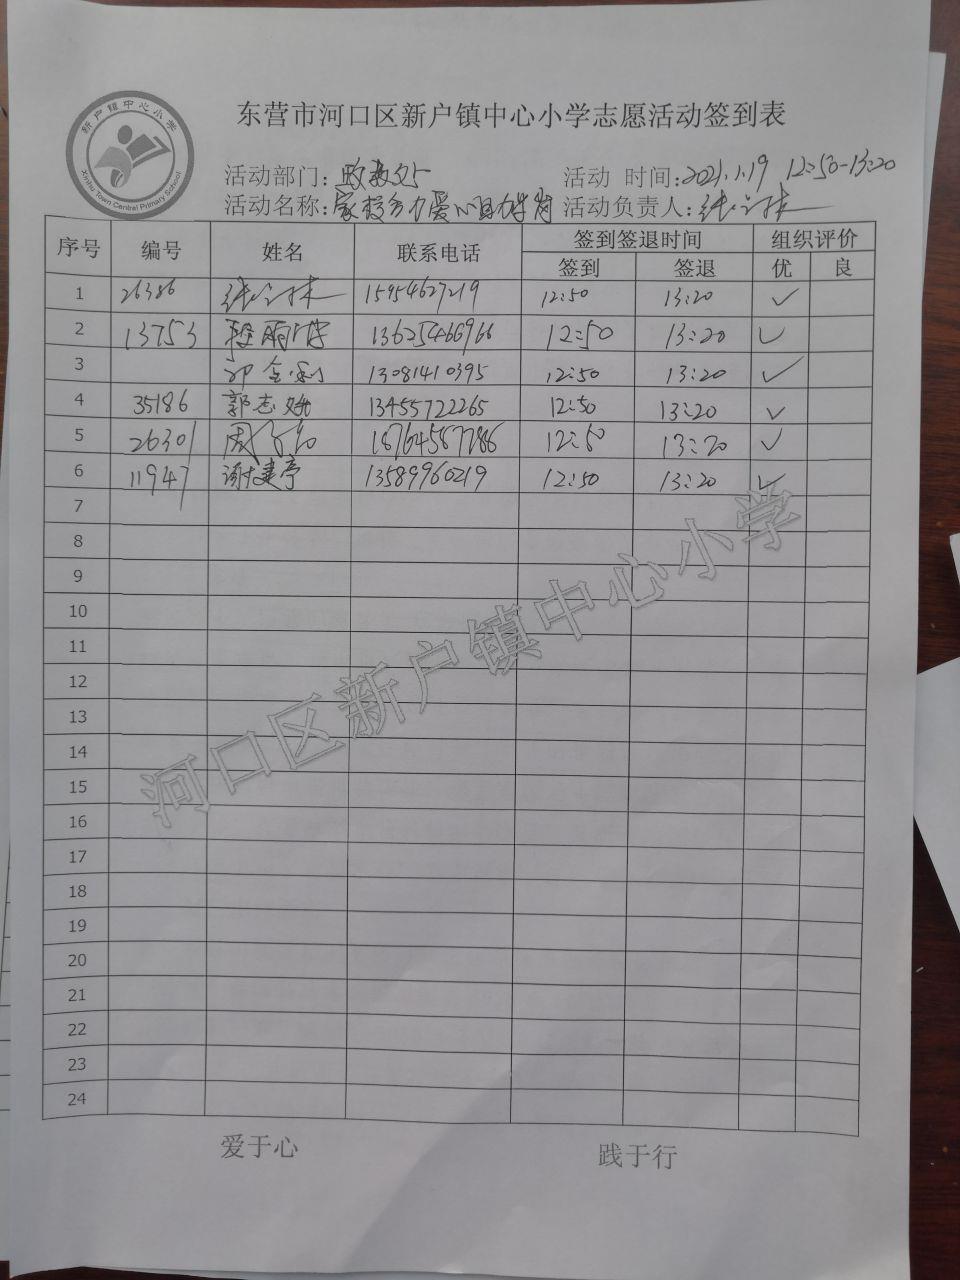 新户镇中心小学
Xinhu Town Central Primary School
东营市河口区新户镇中心小学志愿活动签到表
活动部门：政教处 活动 时间：2021.1.19 12:50-13:20
活动名称：家校合力爱心助学岗 活动负责人：
序号 编号 姓名 联系电话 签到签退时间 组织评价
签到 签退 优 良
1 26386 15954627219 12:50 13:20 ✓
2 13753 13625466966 12:50 13:20 ✓
3 13081410395 12:50 13:20 ✓
4 35186 郭志 13455722265 12:50 13:20 ✓
5 26301 周 18764587786 12:50 13:20 ✓
6 11947 谢建亭 13589960219 12:50 13:20 ✓
7
8
9
10
11
12
13
14
15
16
17
18
19
20
21
22
23
24
河口区新户镇中心小学
爱于心 践于行